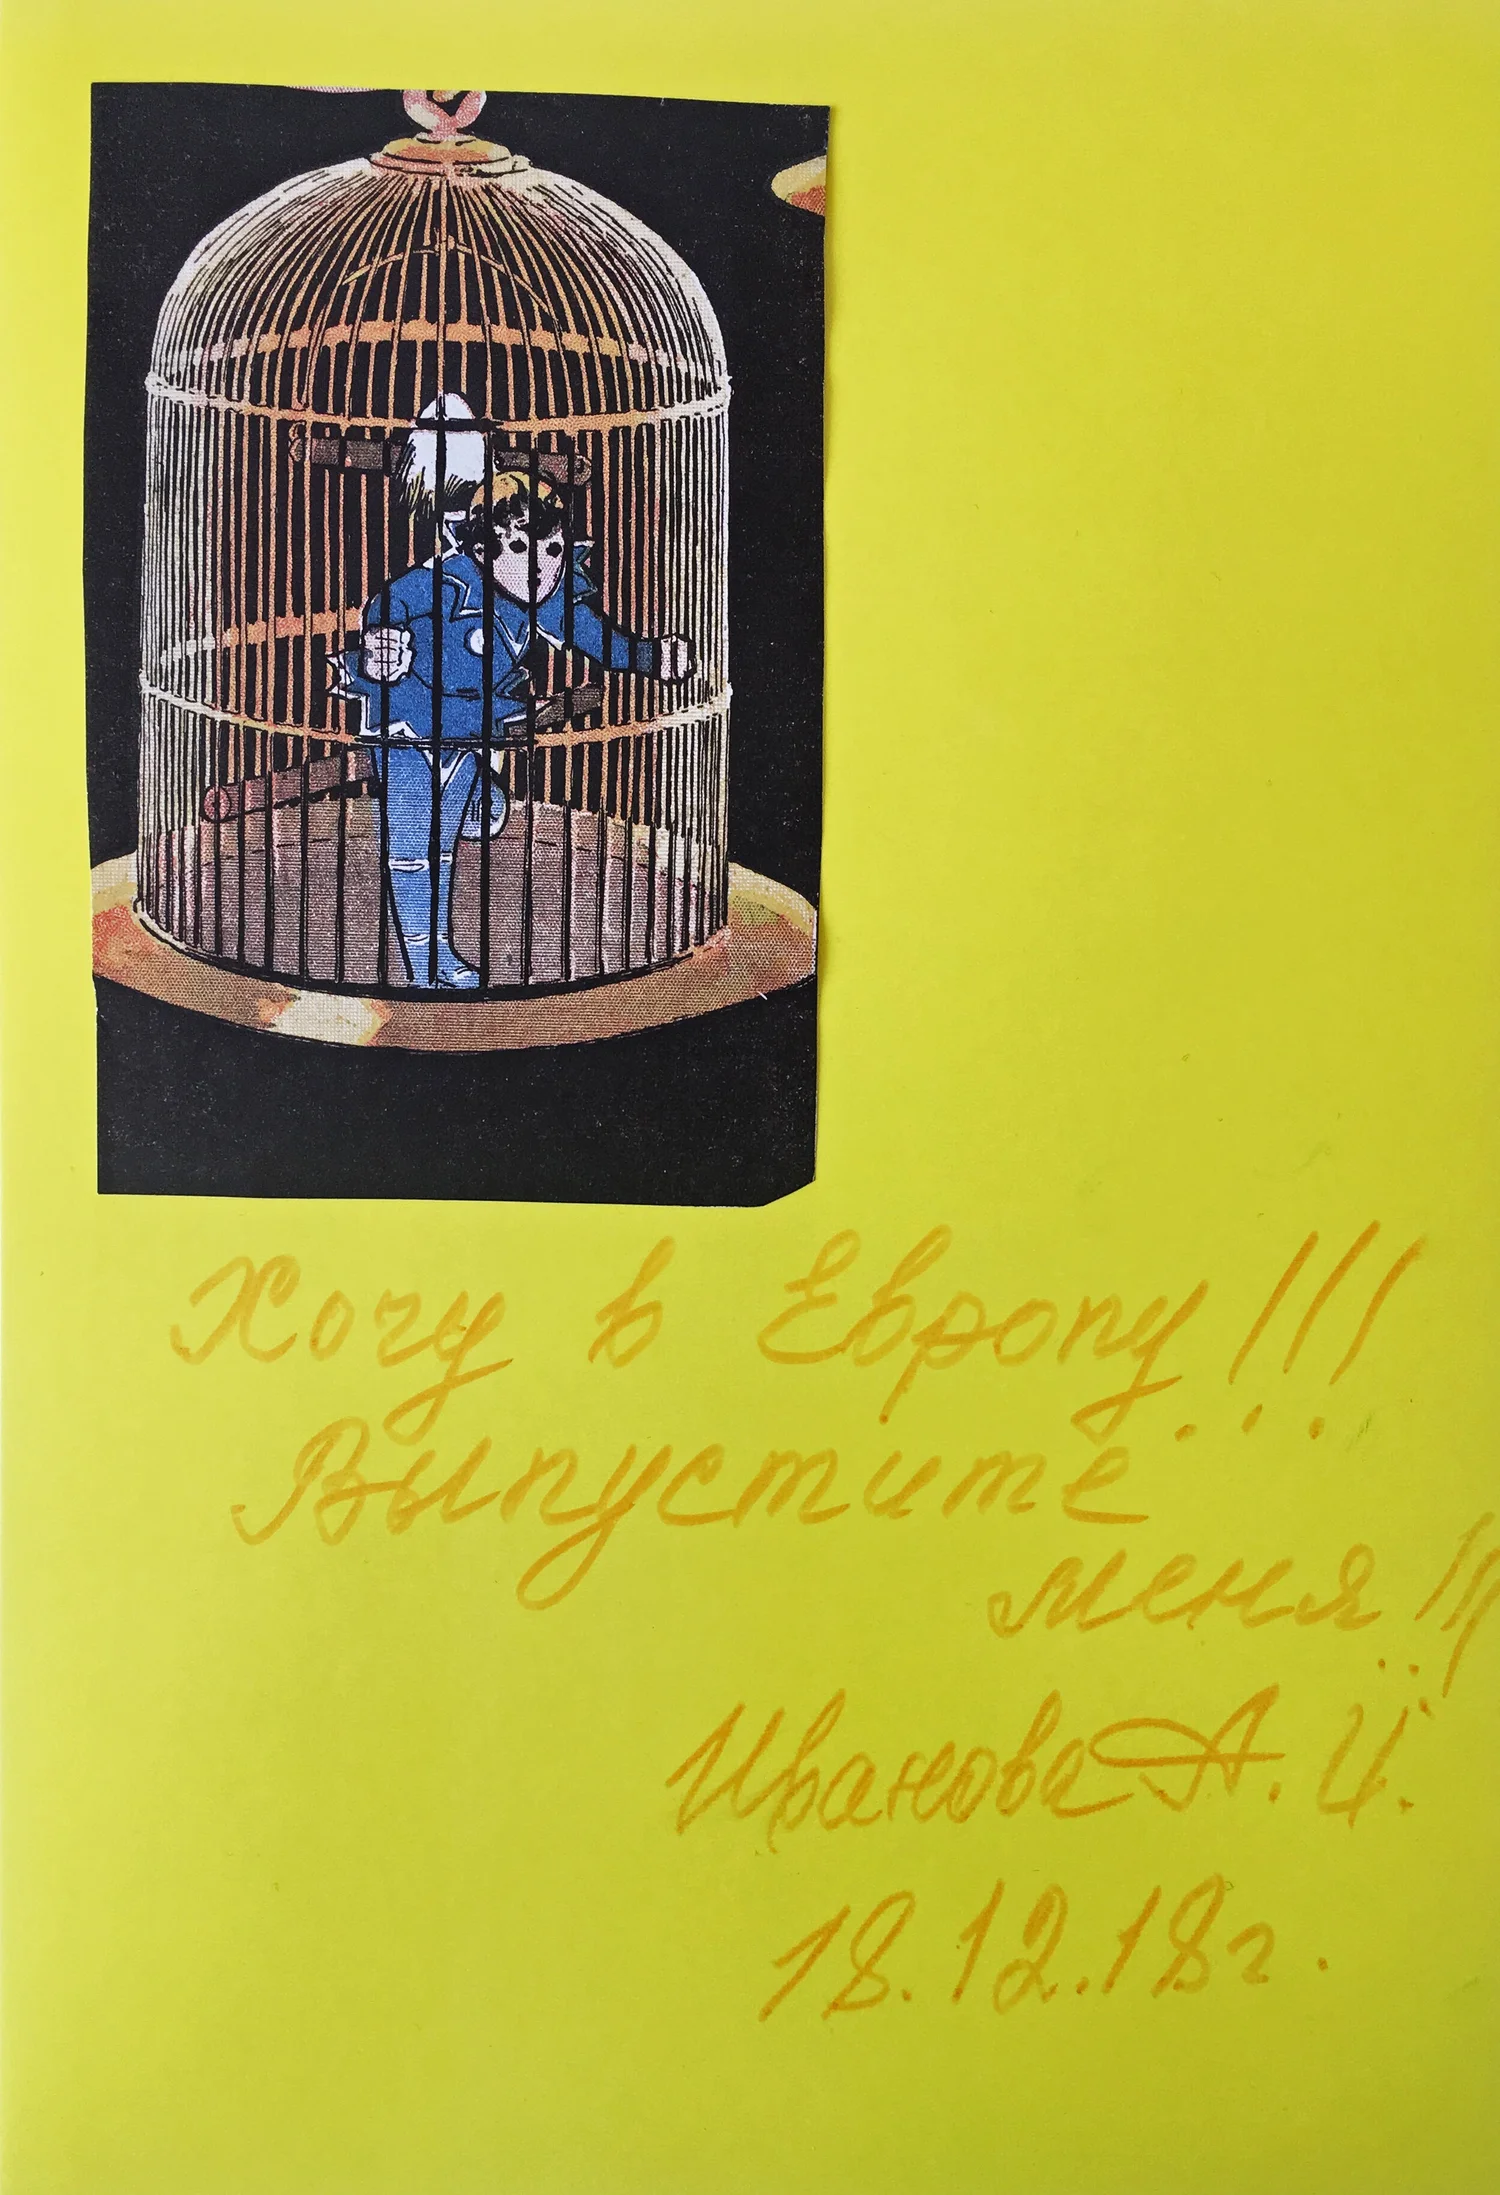 Хочу в Европу!!!
Выпустите
меня!!!
Иванова А. Ц.
18.12.18г.